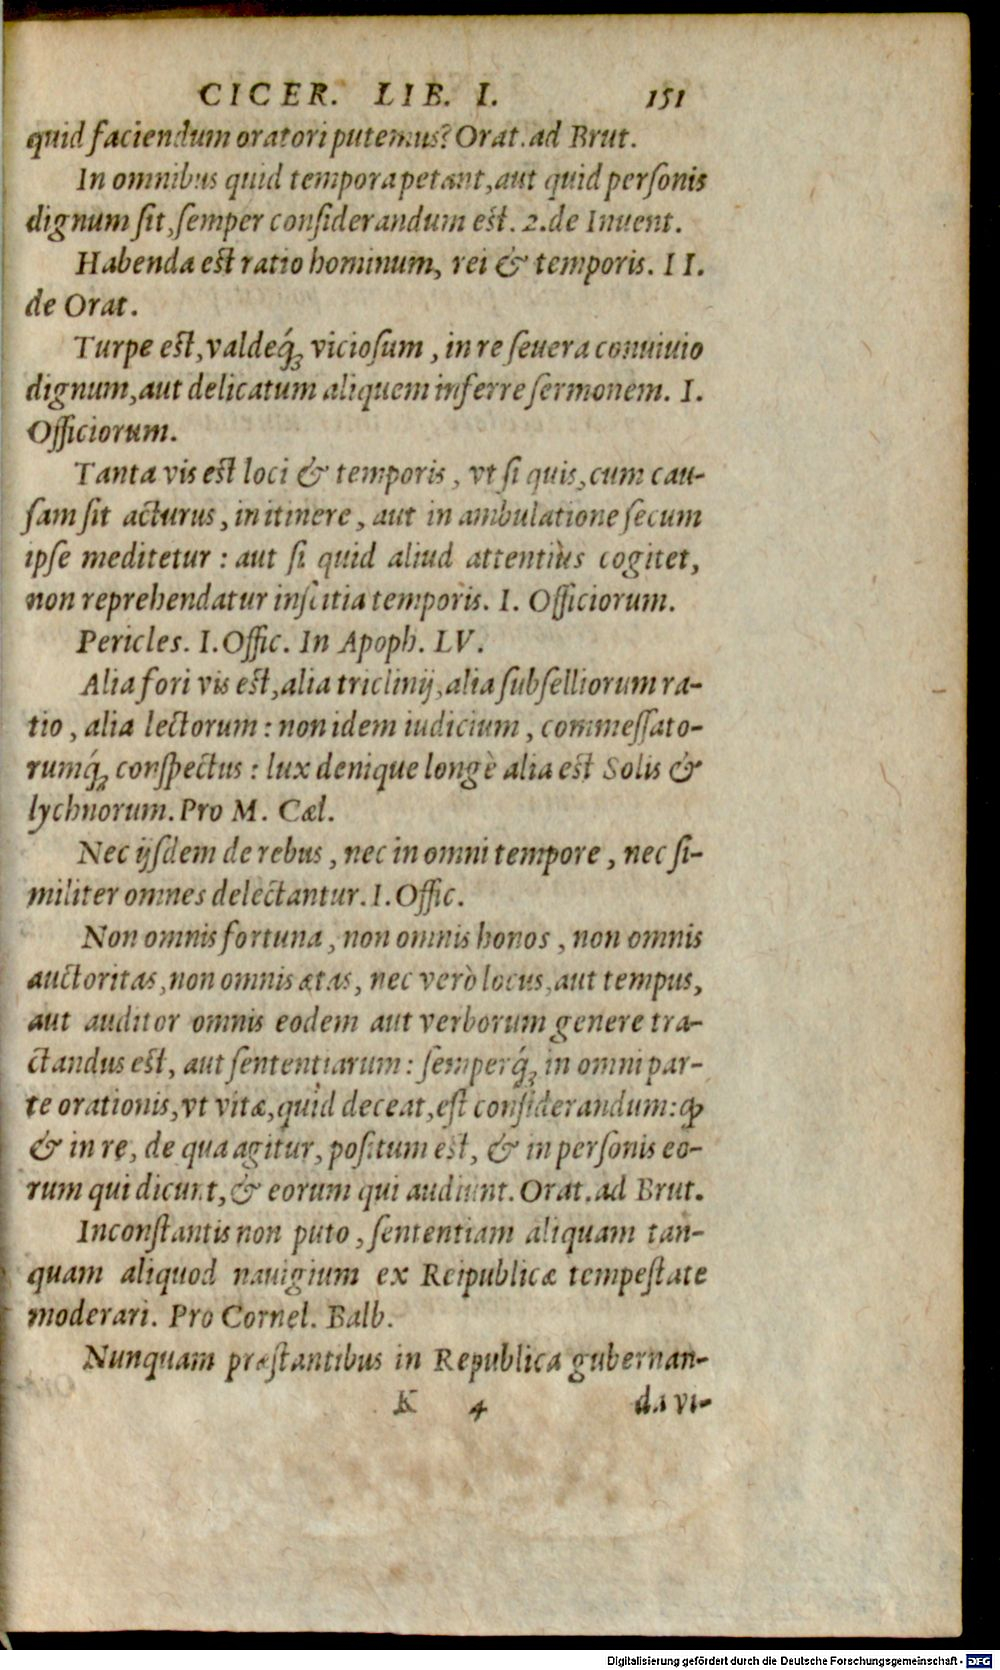 CICER. LIB. I. 151
quid faciendum oratori putemus? Orat. ad Brut.
In omnibus quid tempora petant, aut quid personis
dignum sit, semper considerandum est. 2. de Inuent.
Habenda est ratio hominum, rei & temporis. II.
de Orat.
Turpe est, valdeq́; viciosum, in re seuera conuiuio
dignum, aut delicatum aliquem inferre sermonem. I.
Officiorum.
Tanta vis est loci & temporis, vt si quis, cum cau-
sam sit acturus, in itinere, aut in ambulatione secum
ipse meditetur: aut si quid aliud attentiùs cogitet,
non reprehendatur inscitia temporis. I. Officiorum.
Pericles. I. Offic. In Apoph. LV.
Alia fori vis est, alia triclinij, alia subselliorum ra-
tio, alia lectorum: non idem iudicium, commessato-
rumq́; conspectus: lux denique longè alia est Solis &
lychnorum. Pro M. Cæl.
Nec ijsdem de rebus, nec in omni tempore, nec si-
militer omnes delectantur. I. Offic.
Non omnis fortuna, non omnis honos, non omnis
auctoritas, non omnis ætas, nec verò locus, aut tempus,
aut auditor omnis eodem aut verborum genere tra-
ctandus est, aut sententiarum: semperq́; in omni par-
te orationis, vt vitæ, quid deceat, est considerandum: ꝙ
& in re, de qua agitur, positum est, & in personis eo-
rum qui dicunt, & eorum qui audiunt. Orat. ad Brut.
Inconstantis non puto, sententiam aliquam tan-
quam aliquod nauigium ex Reipublicæ tempestate
moderari. Pro Cornel. Balb.
Nunquam præstantibus in Republica gubernan-
K 4 da vi-
Digitalisierung gefördert durch die Deutsche Forschungsgemeinschaft - DFG